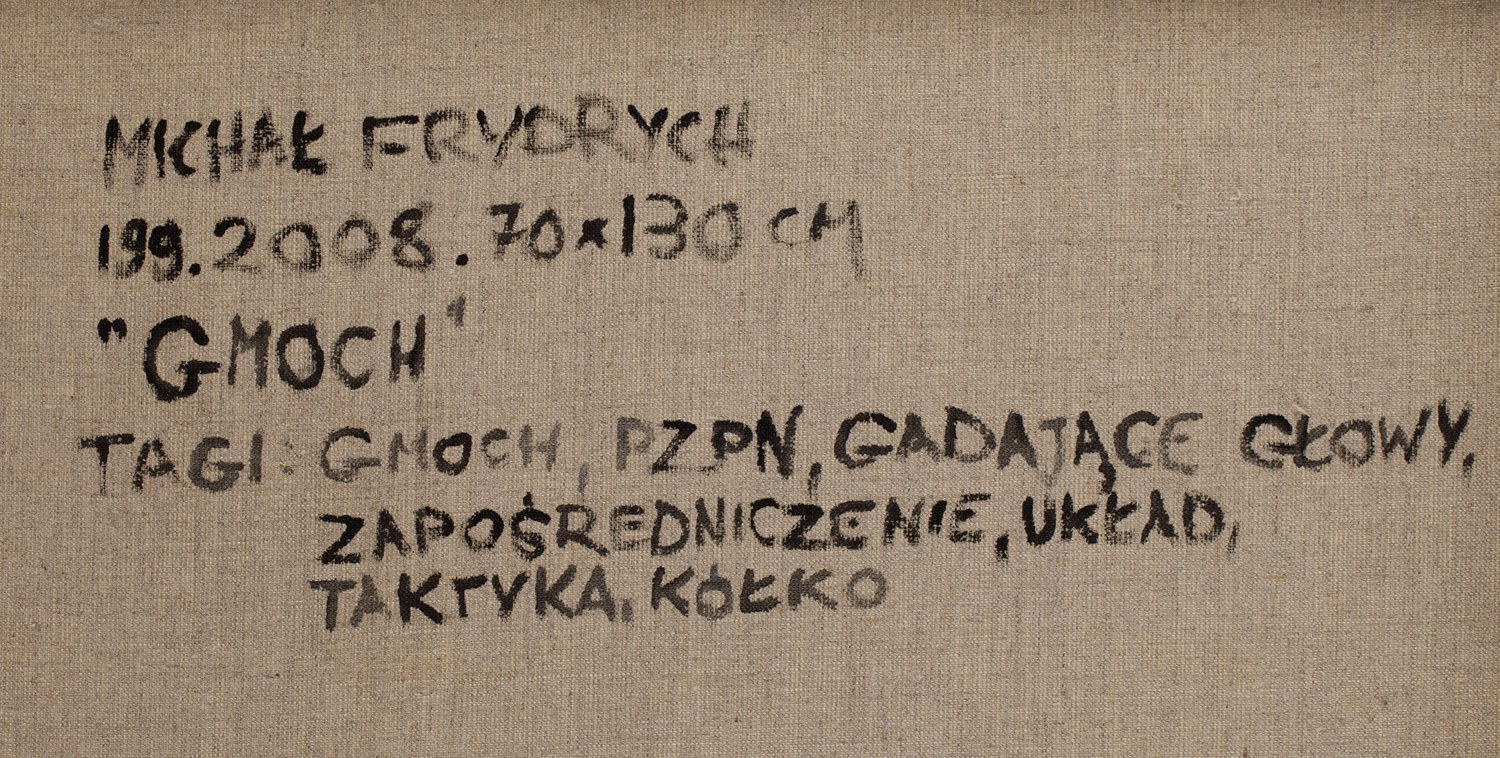 MICHAŁ FRYDRYCH
199.2008. 70x130 CM
"GMOCH"
TAGI: GMOCH, PZPN, GADAJĄCE GŁOWY,
ZAPOŚREDNICZENIE, UKŁAD,
TAKTYKA, KÓŁKO